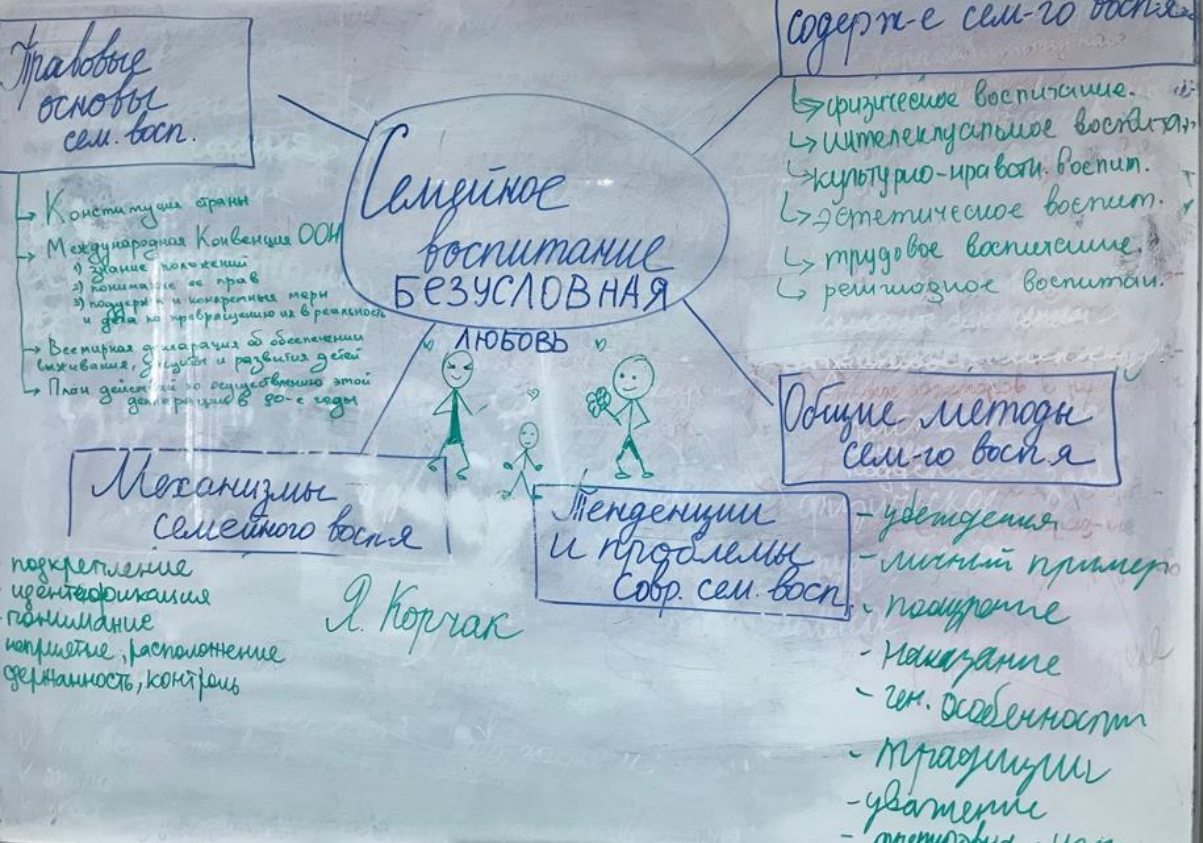 Правовые
основы
сем. восп.
Конституция страны
Международная Конвенция ООН
1) знание положений
2) понимание ее прав
3) поддержки и конкретных мер
и дела по превращению их в реальность
Всемирная декларация об обеспечении
выживания, защиты и развития детей
План действий по осуществлению этой
декларации в 90-е годы
Семейное
воспитание
БЕЗУСЛОВНАЯ
ЛЮБОВЬ
содерж-е сем-го восп-я
физическое воспитание.
интелектуальное воспитан
культурно-нравств. воспит.
эстетическое воспит.
трудовое воспитание.
религиозное воспитан.
Общие методы
сем-го восп.я
- убеждения
- личный пример
- поощрение
- наказание
- ген. особенности
- традиции
- уважение
Механизмы
семейного восп-я
подкрепление
идентификация
понимание
неприятие, расположение
держанность, контроль
Тенденции
и проблемы
Совр. сем. восп.
Я. Корчак